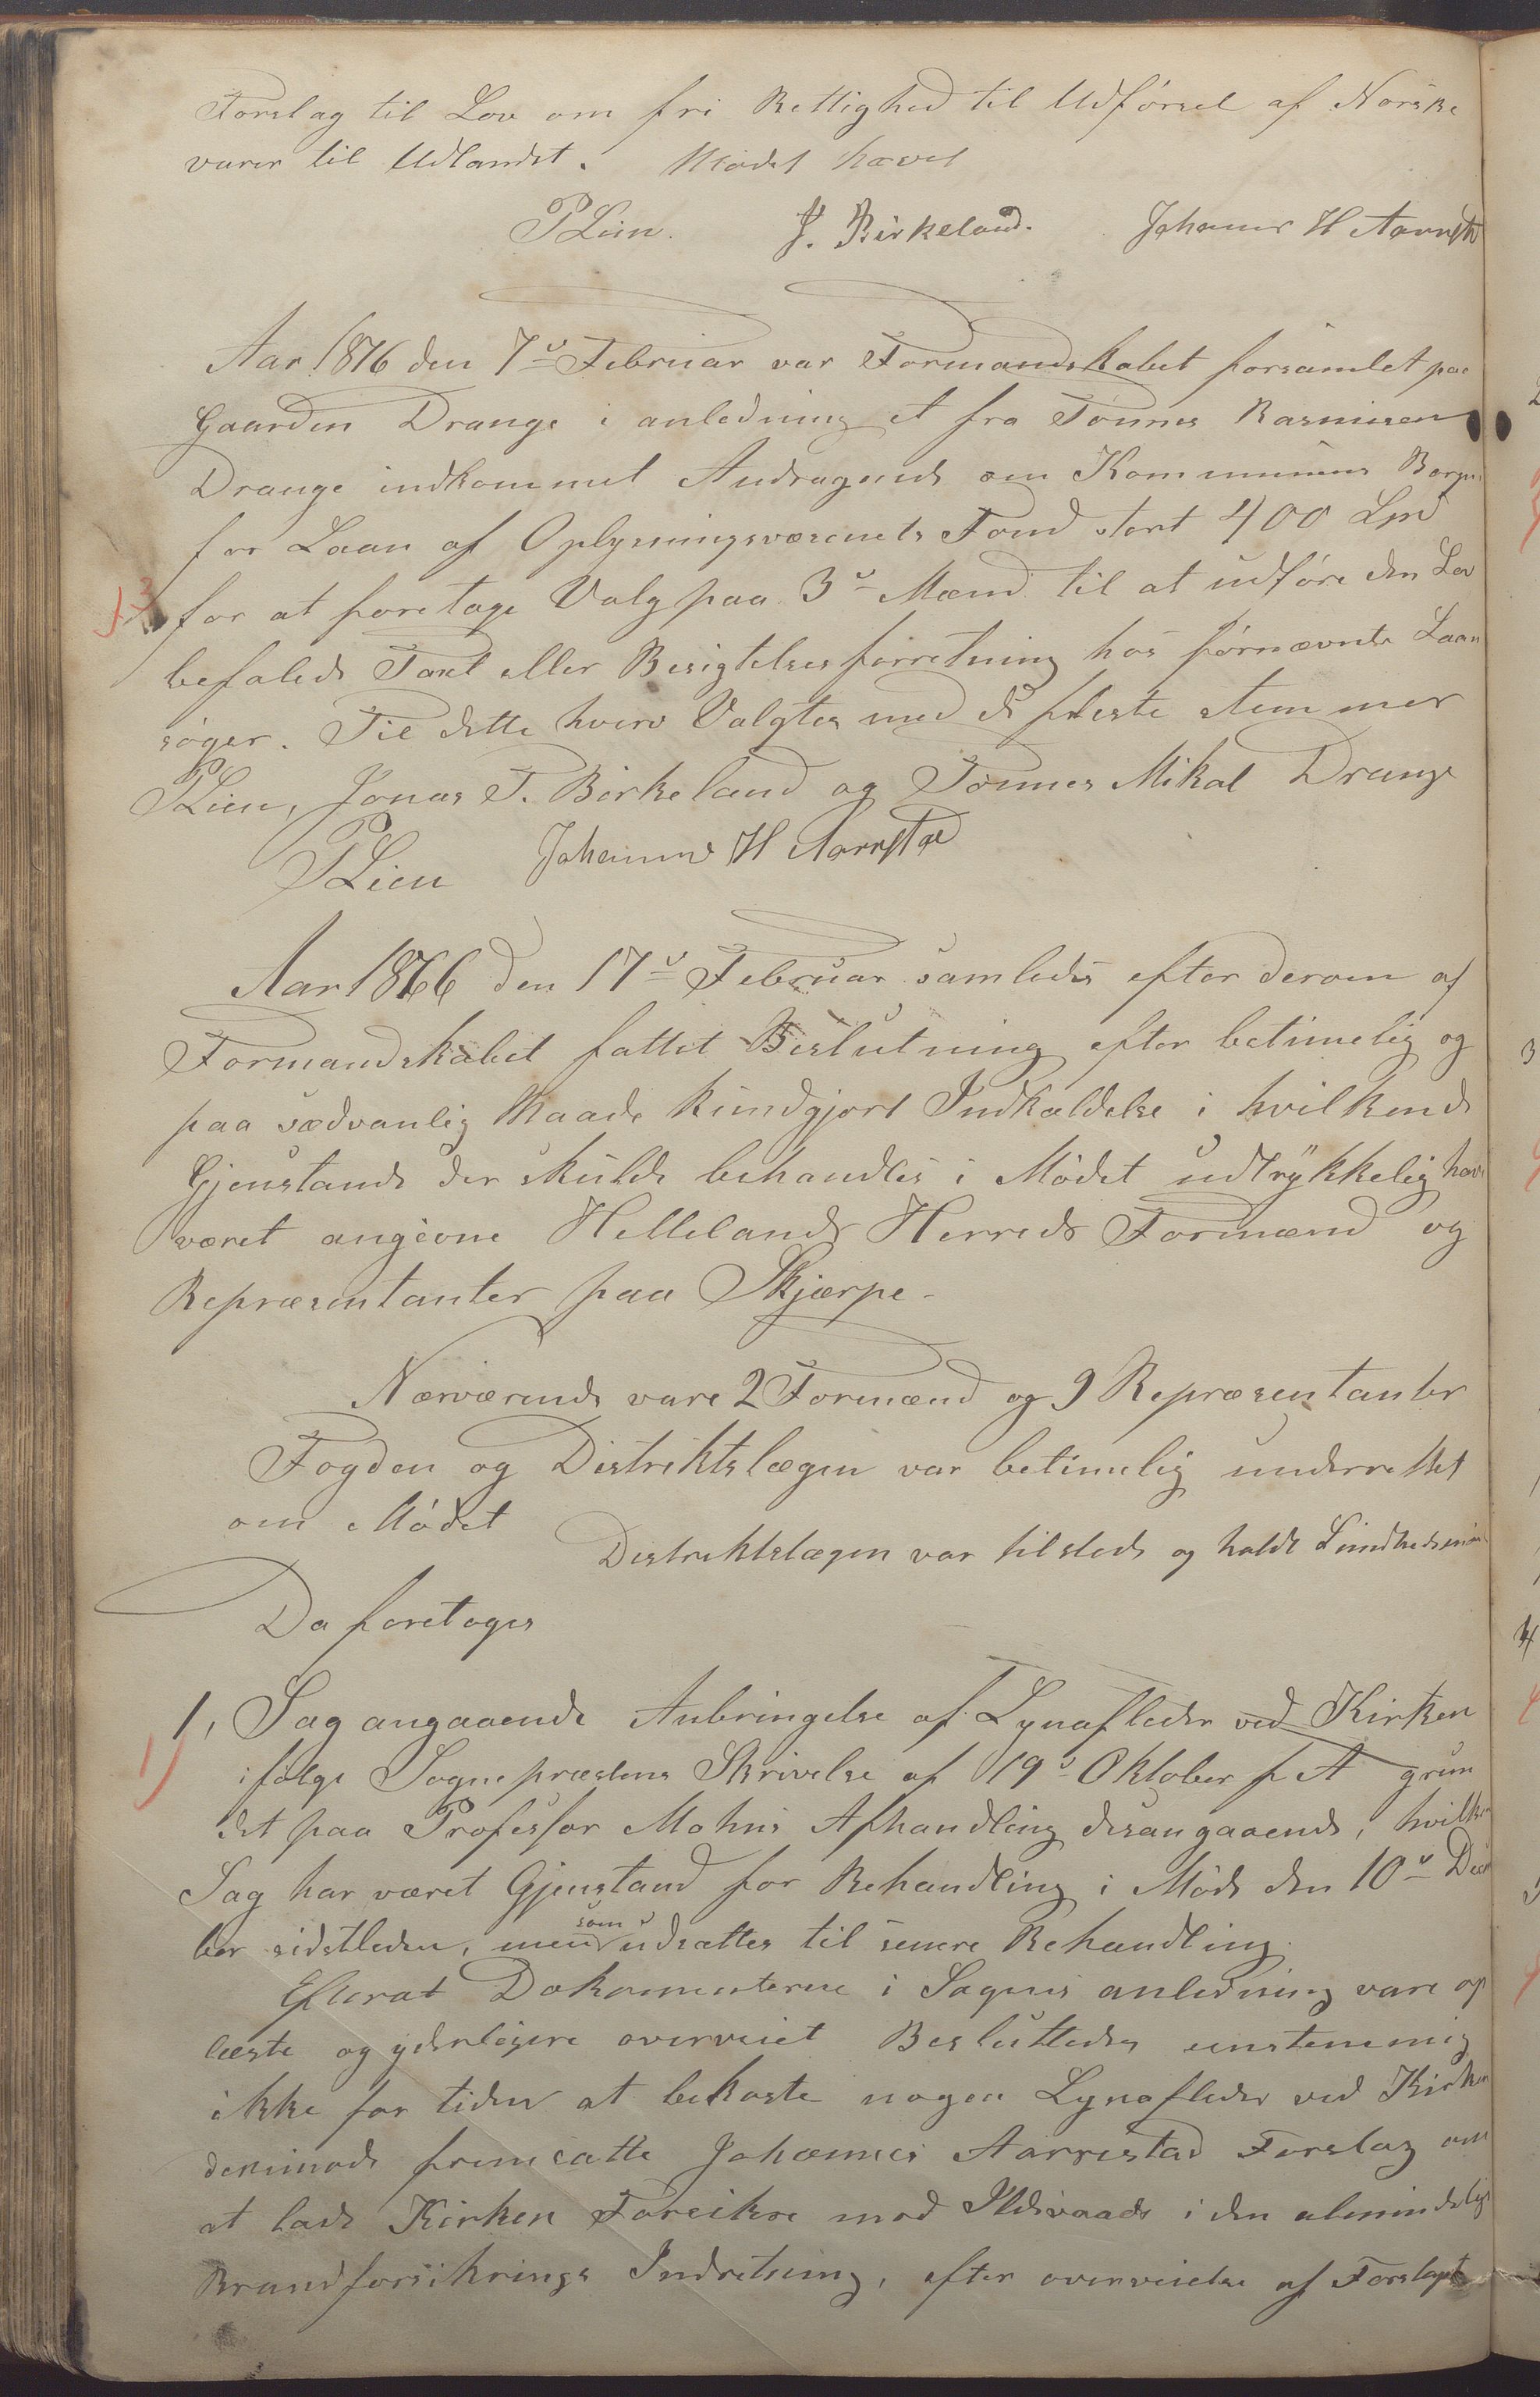 Forslag til Lov om fri Rettighed til Udförsel af Norske
varer til Udlandet. Mödet hævet
PLien. J. Birkeland. Johannes H Aarrestad
Aar 1876 den 7de Februar var Formandskabet forsamlet paa
Gaarden Drange i anledning et fra Tönnes Rasmusen
Drange indkommet Andragende om Kommunens Borgen
for Laan af Oplysningsvæsenets Fond stort 400 Spd
for at foretage Valg paa 3de Mænd til at udföre den Lov
befalede Taxt eller Besigtelsesforretning hos förnævnte Laan
söger. Til dette hverv Valgtes med de fleste stemmer
PLien, Jonas T. Birkeland og Tönnes Mikal Drange
PLien Johannes H Aarrestad
Aar 1876 den 17de Februar samledes efter derom af
Formandskabet fattet Beslutning efter betimelig og
paa sædvanlig Maade kundgjort Indkaldelse i hvilken de
Gjenstande der skulde behandles i Mödet udtrykkelig have
været angivne Hellelands Herreds Formænd og
Repræsentanter paa Skjærpe.
Nærværende vare 2 Formænd og 9 Repræsentanter
Fogden og Distriktslægen var betimelig underrettet
om Mödet
Distriktslægen var tilstede og holdt
Da foretoges
1, Sag angaaende Anbringelse af Lynafleder ved Kirken
1)
ifölge Sognepræstens Skrivelse af 19de Oktober f A grun
det paa Professor Mohns Afhandling desangaaende, hvilken
Sag har været Gjenstand for Behandling i Möde den 10de Decem
ber sidstleden, men som udsattes til senere Behandling.
Efterat Dokumenterne i Sagens anledning vare op
læste og yderligere overveiet Besluttedes enstemmig
ikke for tiden at bekoste nogen Lynafleder ved Kirken
derimod fremsatte Johannes Aarrestad Forslag om
at lade Kirken Forsikre mod Ildsvaade i den almindelige
Brandforsikrings Indretning, efter overveielse af Forslaget